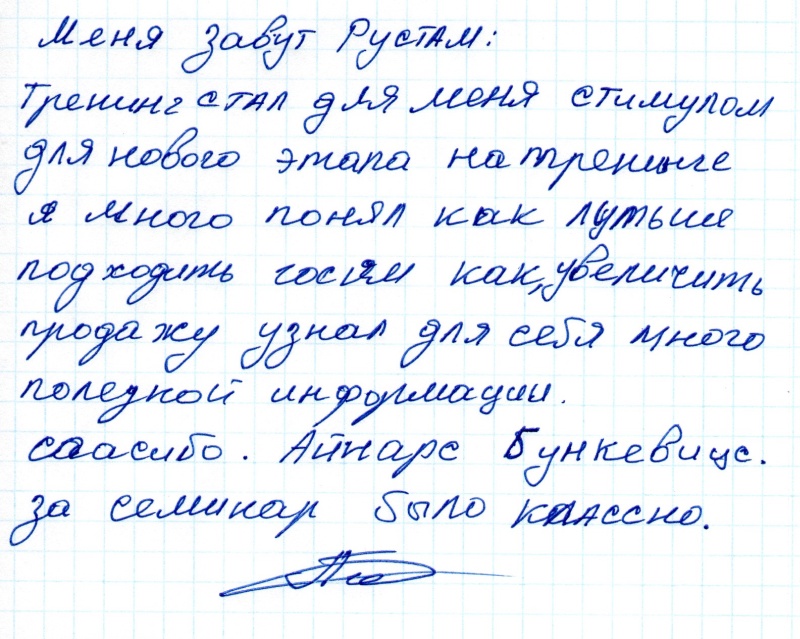 Меня завут Рустам:
Тренинг стал для меня стимулом
для нового этапа на тренинге
я много понял как лутьше
подходить госям как, увеличить
продажу узнал для себя много
полезной информации.
спасибо. Айнарс Бункевицс.
за семинар было классно.